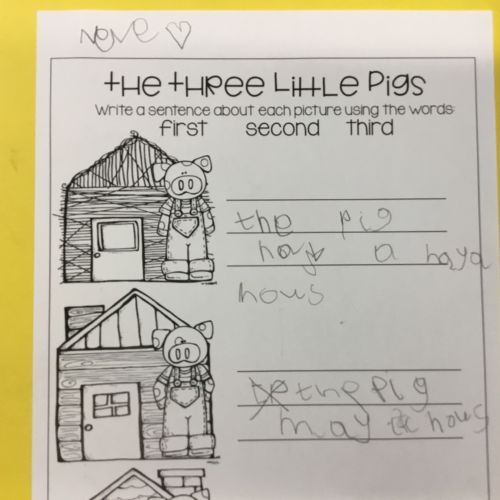 Neve ♡
The Three Little Pigs
Write a sentence about each picture using the words:
first second third
the pig
hay a haya
hous
the pig
may hous